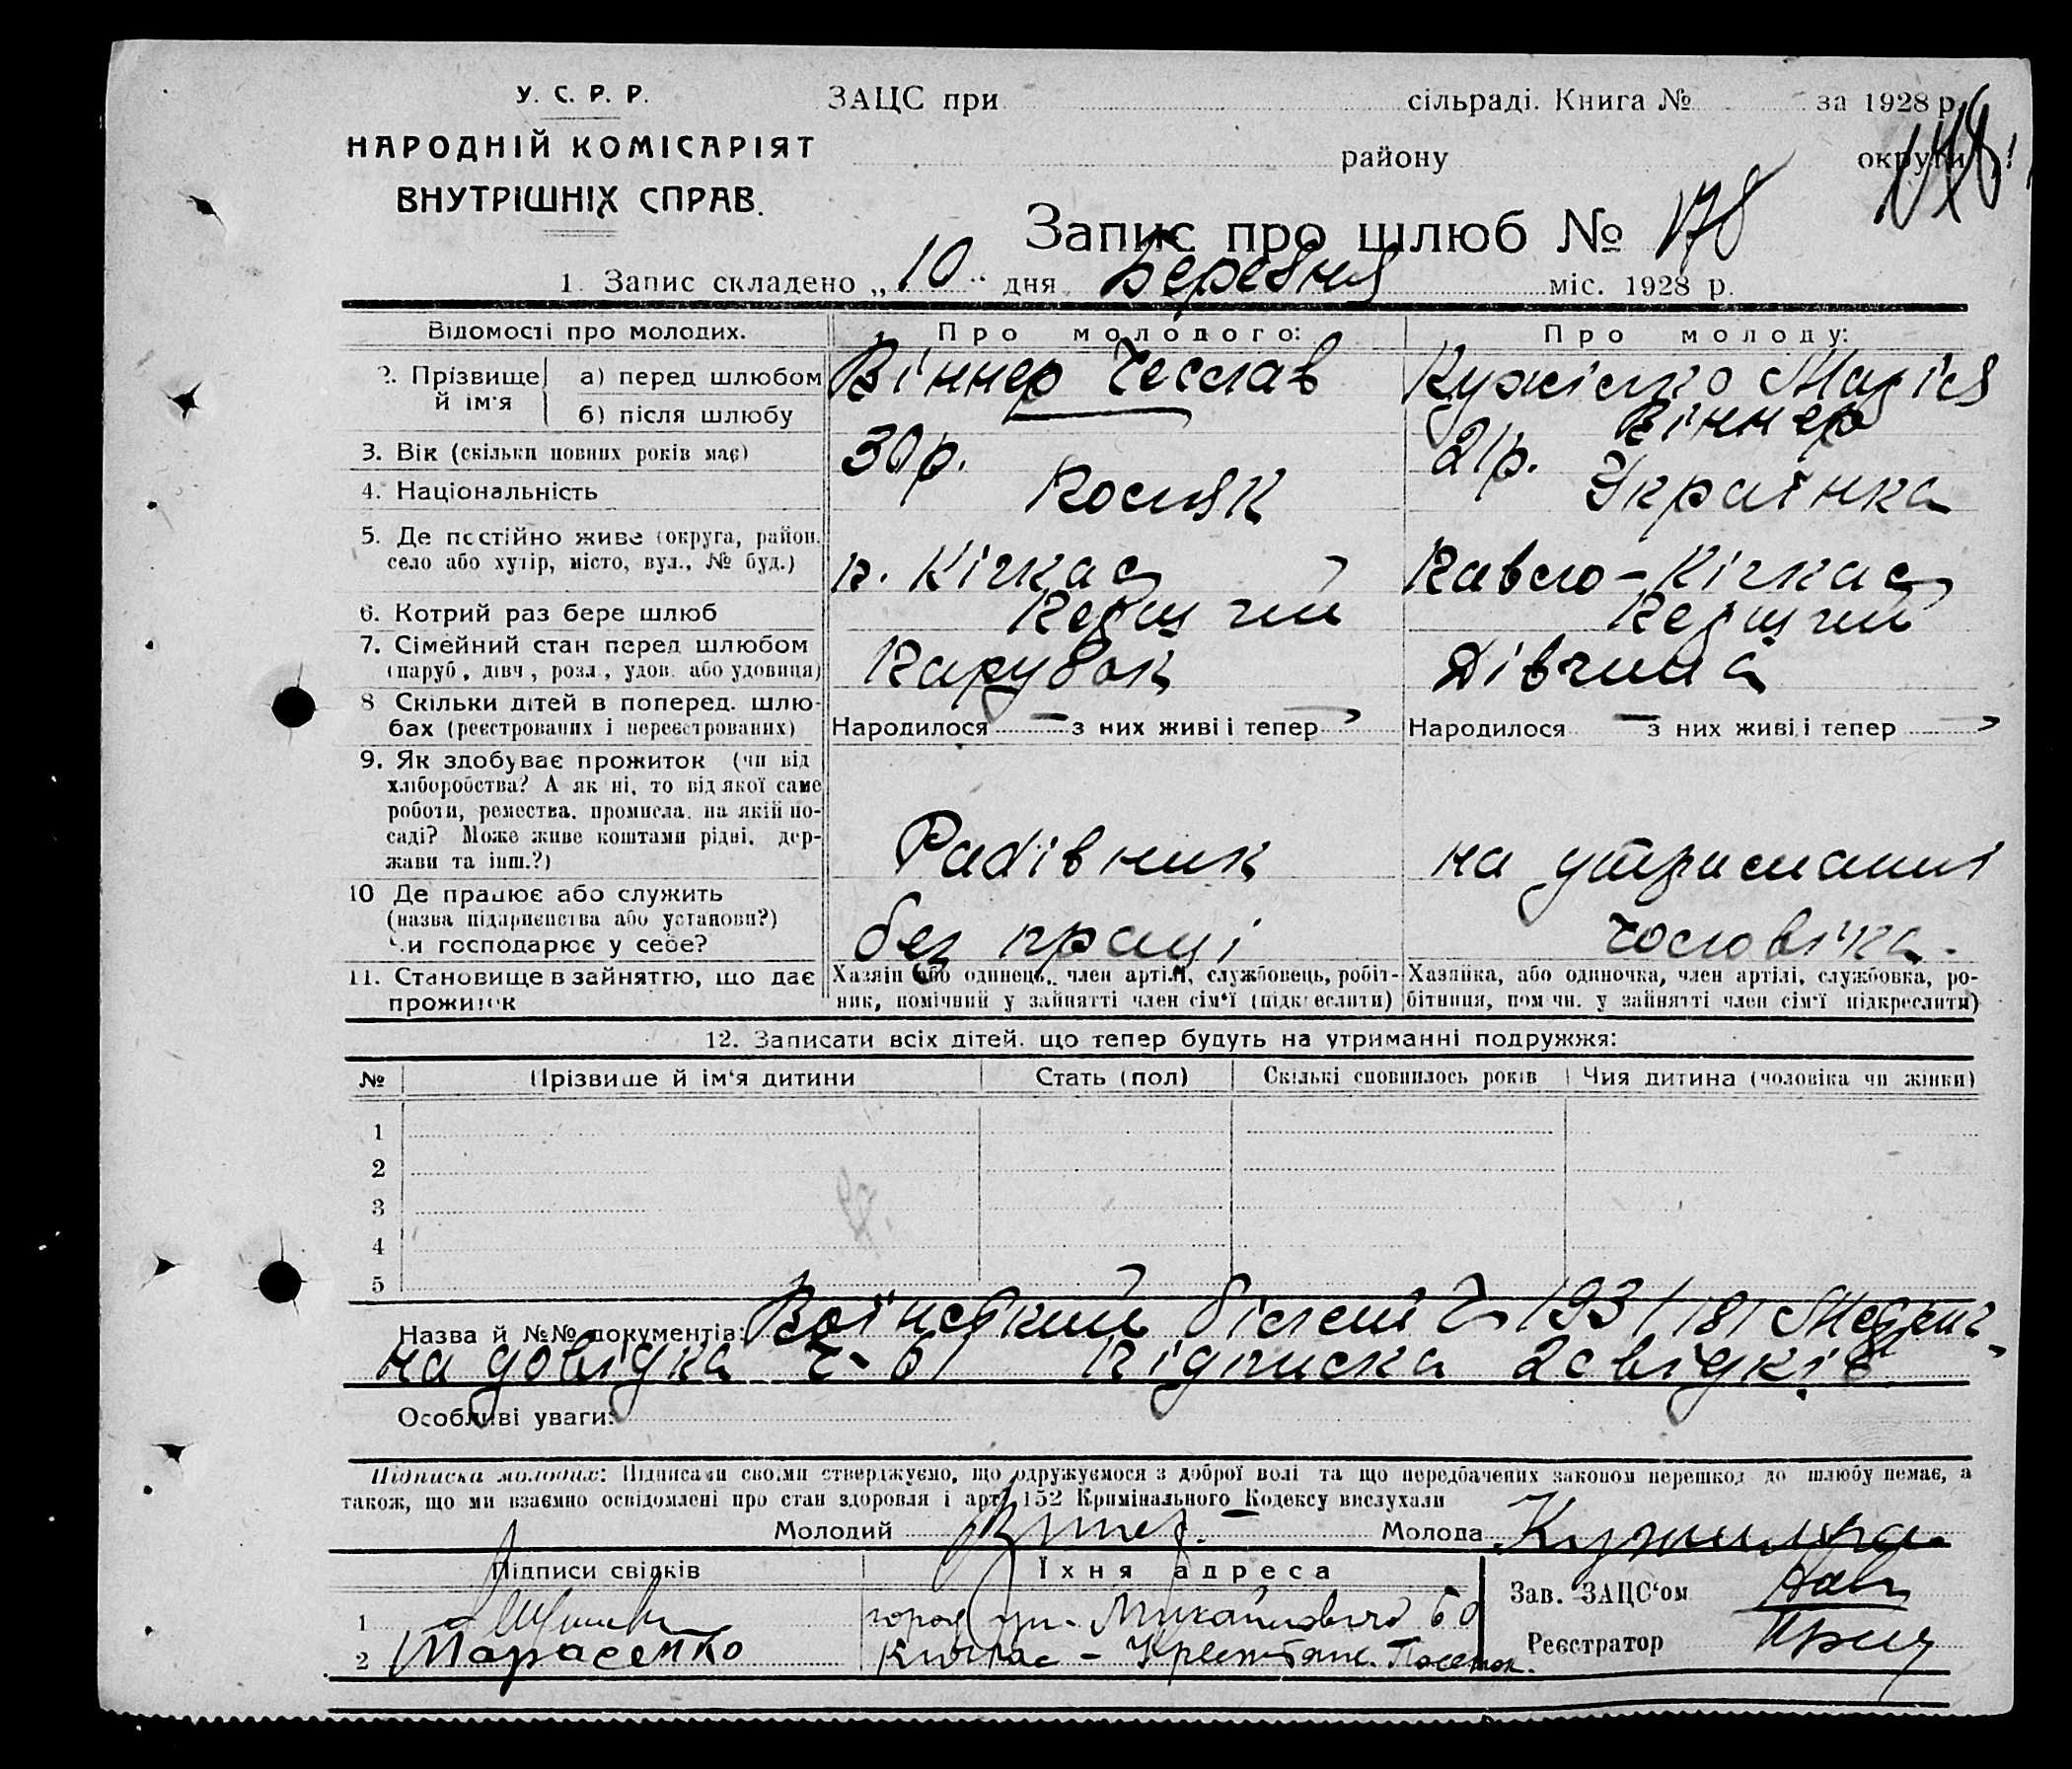 У. С. Р. Р.
НАРОДНІЙ КОМІСАРІЯТ
ВНУТРІШНІХ СПРАВ.
ЗАЦС при сільраді. Книга № за 1928 р.
району округи
178
Запис про шлюб № 178
1. Запис складено „10“ дня Березня міс. 1928 р.
Відомості про молодих. Про молодого: Про молоду:
2. Прізвище й ім'я
а) перед шлюбом Віннер Чеслав Кужілко Марія
б) після шлюбу Віннер
3. Вік (скільки повних років має) 30 р. 21 р.
4. Національність Поляк Українка
5. Де постійно живе (округа, район,
село або хутір, місто, вул., № буд.) п. Кічкас Павло-Кічкас
6. Котрий раз бере шлюб Перший Перший
7. Сімейний стан перед шлюбом
(паруб., дівч., розл., удов. або удовиця) Парубок Дівчина
8 Скільки дітей в поперед. шлю-
бах (реєстрованих і нереєстрованих) Народилося — з них живі і тепер Народилося — з них живі і тепер
9. Як здобуває прожиток (чи від
хліборобства? А як ні, то від якої саме
роботи, ремества, промисла, на якій по-
саді? Може живе коштами рідні, дер-
жави та інш.?) Робівник на утриманні
10 Де працює або служить
(назва підприємства або установи?)
Чи господарює у себе? без праці чоловіка.
11. Становище в зайняттю, що дає
прожиток
Хазяїн або одинець, член артілі, службовець, робіт-
ник, помічний у зайнятті член сім'ї (підкреслити)
Хазяйка, або одиночка, член артілі, службовка, ро-
бітниця, помічн. у зайнятті член сім'ї підкреслити)
12. Записати всіх дітей, що тепер будуть на утриманні подружжя:
№ Прізвище й ім'я дитини Стать (пол) Скількі сповнилось років Чия дитина (чоловіка чи жінки)
1
2
3
4
5
Назва й №№ документів: Воїнський білет Ч 193/181 Медич
на довідка ч- 61 Підписка 2 свідків
Особливі уваги:
Підписка молодих: Підписами своїми стверджуємо, що одружуємося з доброї волі та що передбачених законом перешкод до шлюбу немає, а
також, що ми взаємно освідомлені про стан здоровля і арт. 152 Кримінального Кодексу вислухали
Молодий Молода Кужилка
Підписи свідків Їхня адреса
Зав. ЗАЦС'ом
1 город ул. 60
2 Тарасенко Кичкас - Крестьянс. Поселок.
Реєстратор